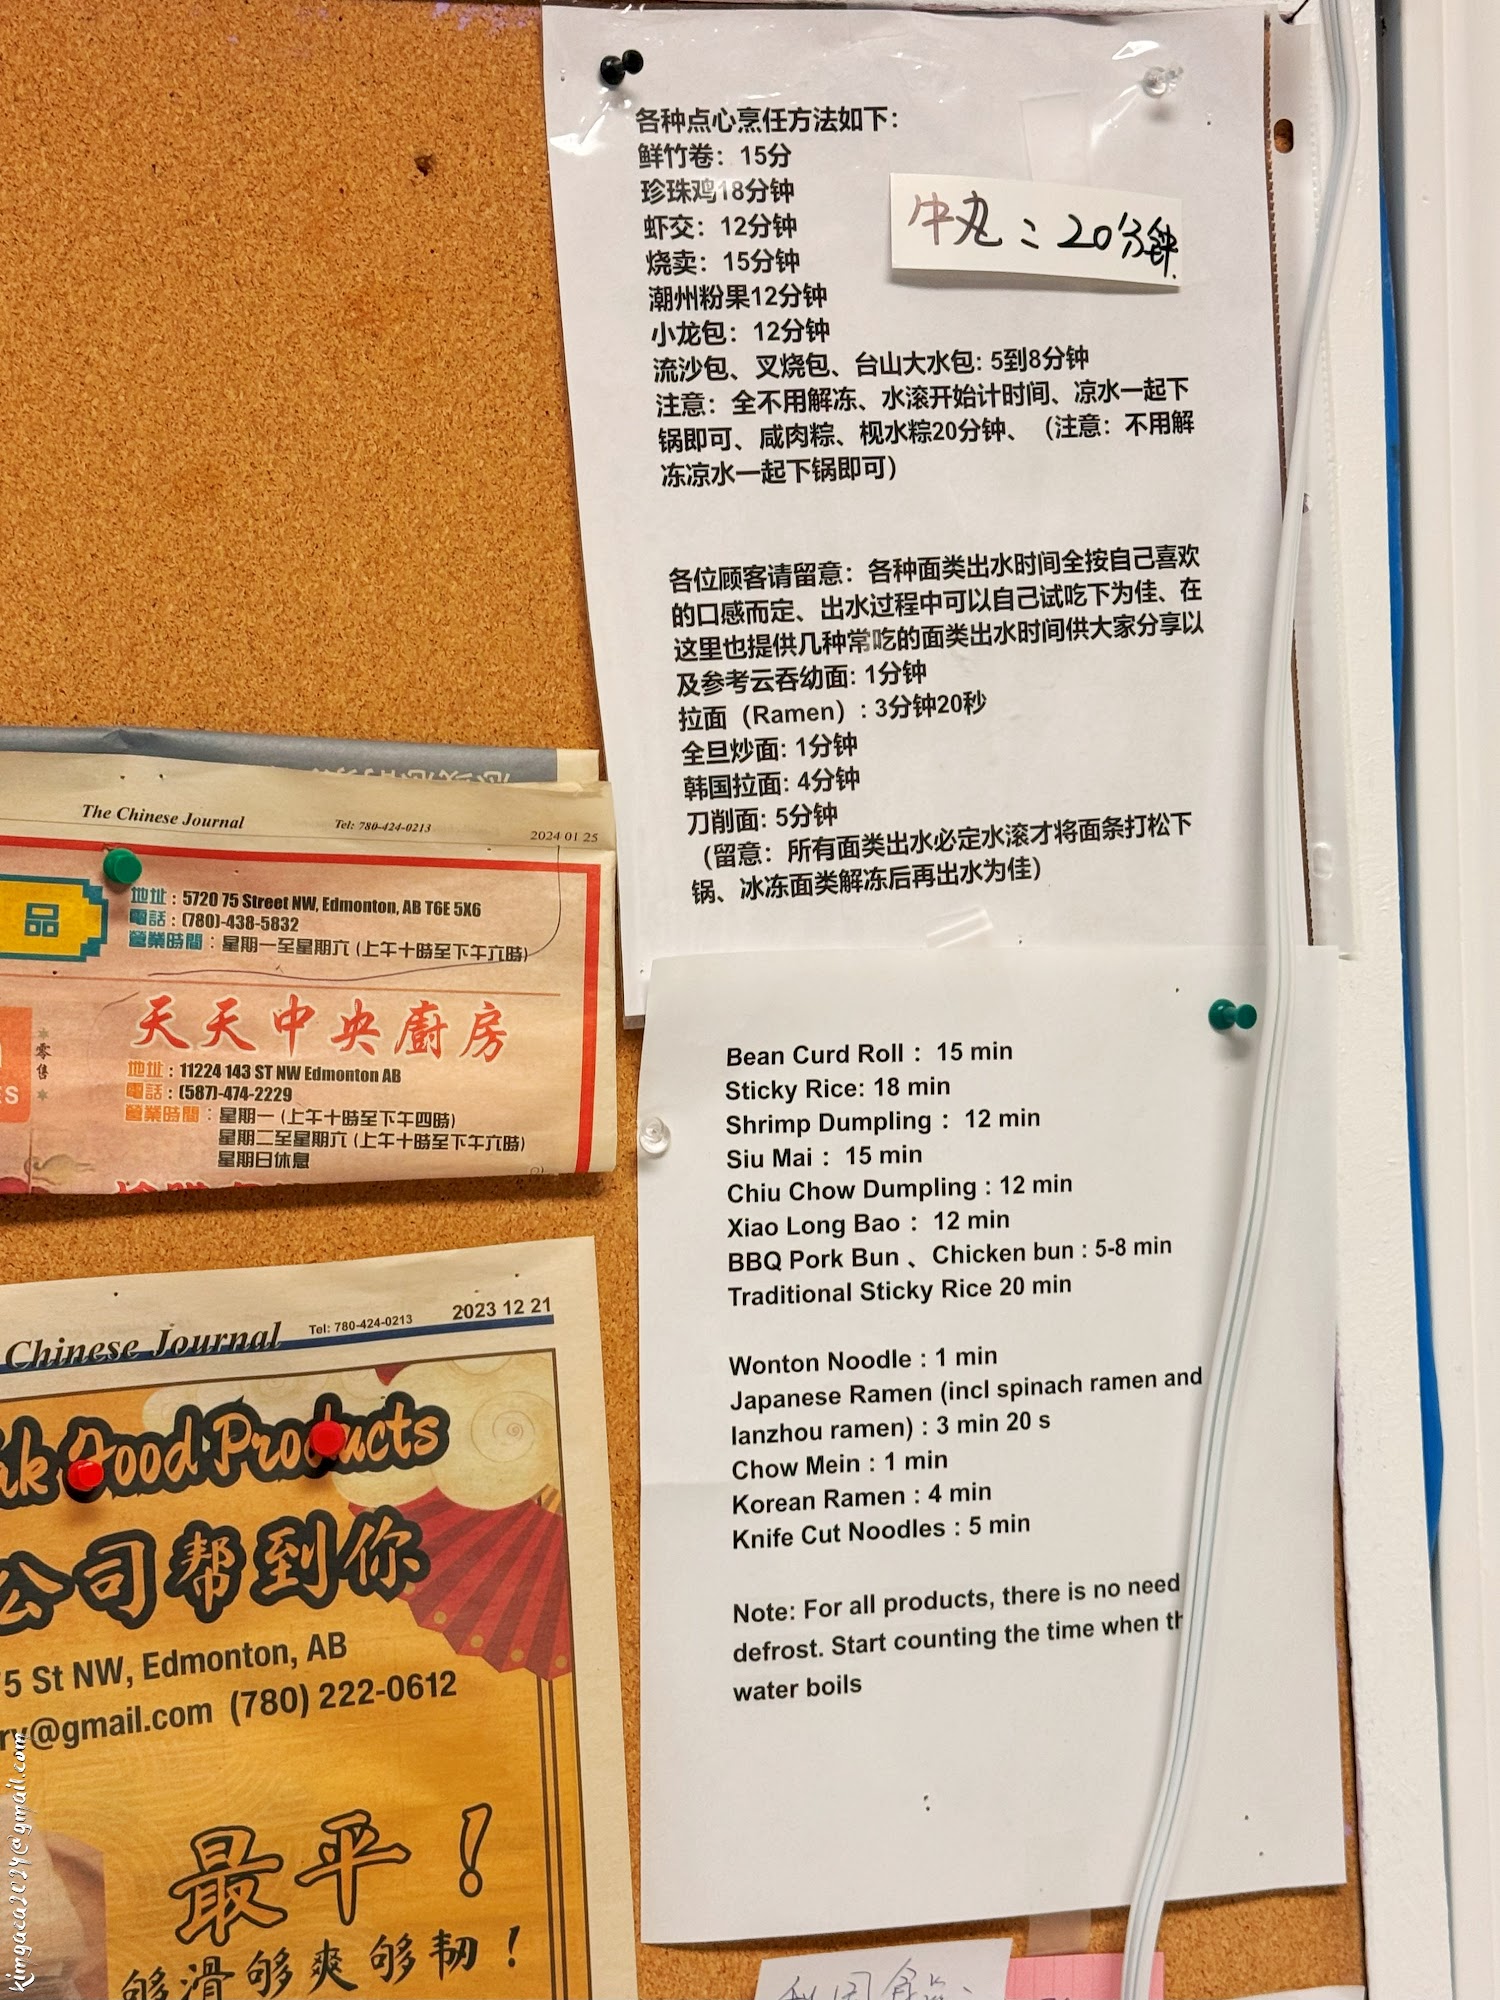 各种点心烹任方法如下：
鲜竹卷：15分
珍珠鸡18分钟
虾交：12分钟
烧卖：15分钟
潮州粉果12分钟
小龙包：12分钟
流沙包、叉烧包、台山大水包: 5到8分钟
注意：全不用解冻、水滚开始计时间、凉水一起下
锅即可、咸肉粽、枧水粽20分钟、（注意：不用解
冻凉水一起下锅即可）
牛丸：20分钟
各位顾客请留意：各种面类出水时间全按自己喜欢
的口感而定、出水过程中可以自己试吃下为佳、在
这里也提供几种常吃的面类出水时间供大家分享以
及参考云吞幼面: 1分钟
拉面（Ramen）: 3分钟20秒
全旦炒面: 1分钟
韩国拉面: 4分钟
刀削面: 5分钟
（留意：所有面类出水必定水滚才将面条打松下
锅、冰冻面类解冻后再出水为佳）
Bean Curd Roll： 15 min
Sticky Rice: 18 min
Shrimp Dumpling： 12 min
Siu Mai： 15 min
Chiu Chow Dumpling : 12 min
Xiao Long Bao： 12 min
BBQ Pork Bun 、Chicken bun : 5-8 min
Traditional Sticky Rice 20 min
Wonton Noodle : 1 min
Japanese Ramen (incl spinach ramen and
lanzhou ramen) : 3 min 20 s
Chow Mein : 1 min
Korean Ramen : 4 min
Knife Cut Noodles : 5 min
Note: For all products, there is no need
defrost. Start counting the time when th
water boils
The Chinese Journal Tel: 780-424-0213 2024 01 25
品
地址 : 5720 75 Street NW, Edmonton, AB T6E 5X6
電話 : (780)-438-5832
營業時間 : 星期一至星期六 (上午十時至下午六時)
零售
ES
天天中央廚房
地址 : 11224 143 ST NW Edmonton AB
電話 : (587)-474-2229
營業時間 : 星期一 (上午十時至下午四時)
星期二至星期六 (上午十時至下午六時)
星期日休息
Chinese Journal Tel: 780-424-0213 2023 12 21
ak Food Products
公司帮到你
75 St NW, Edmonton, AB
ry@gmail.com (780) 222-0612
最平！
够滑够爽够韧！
kimgaca2024@gmail.com